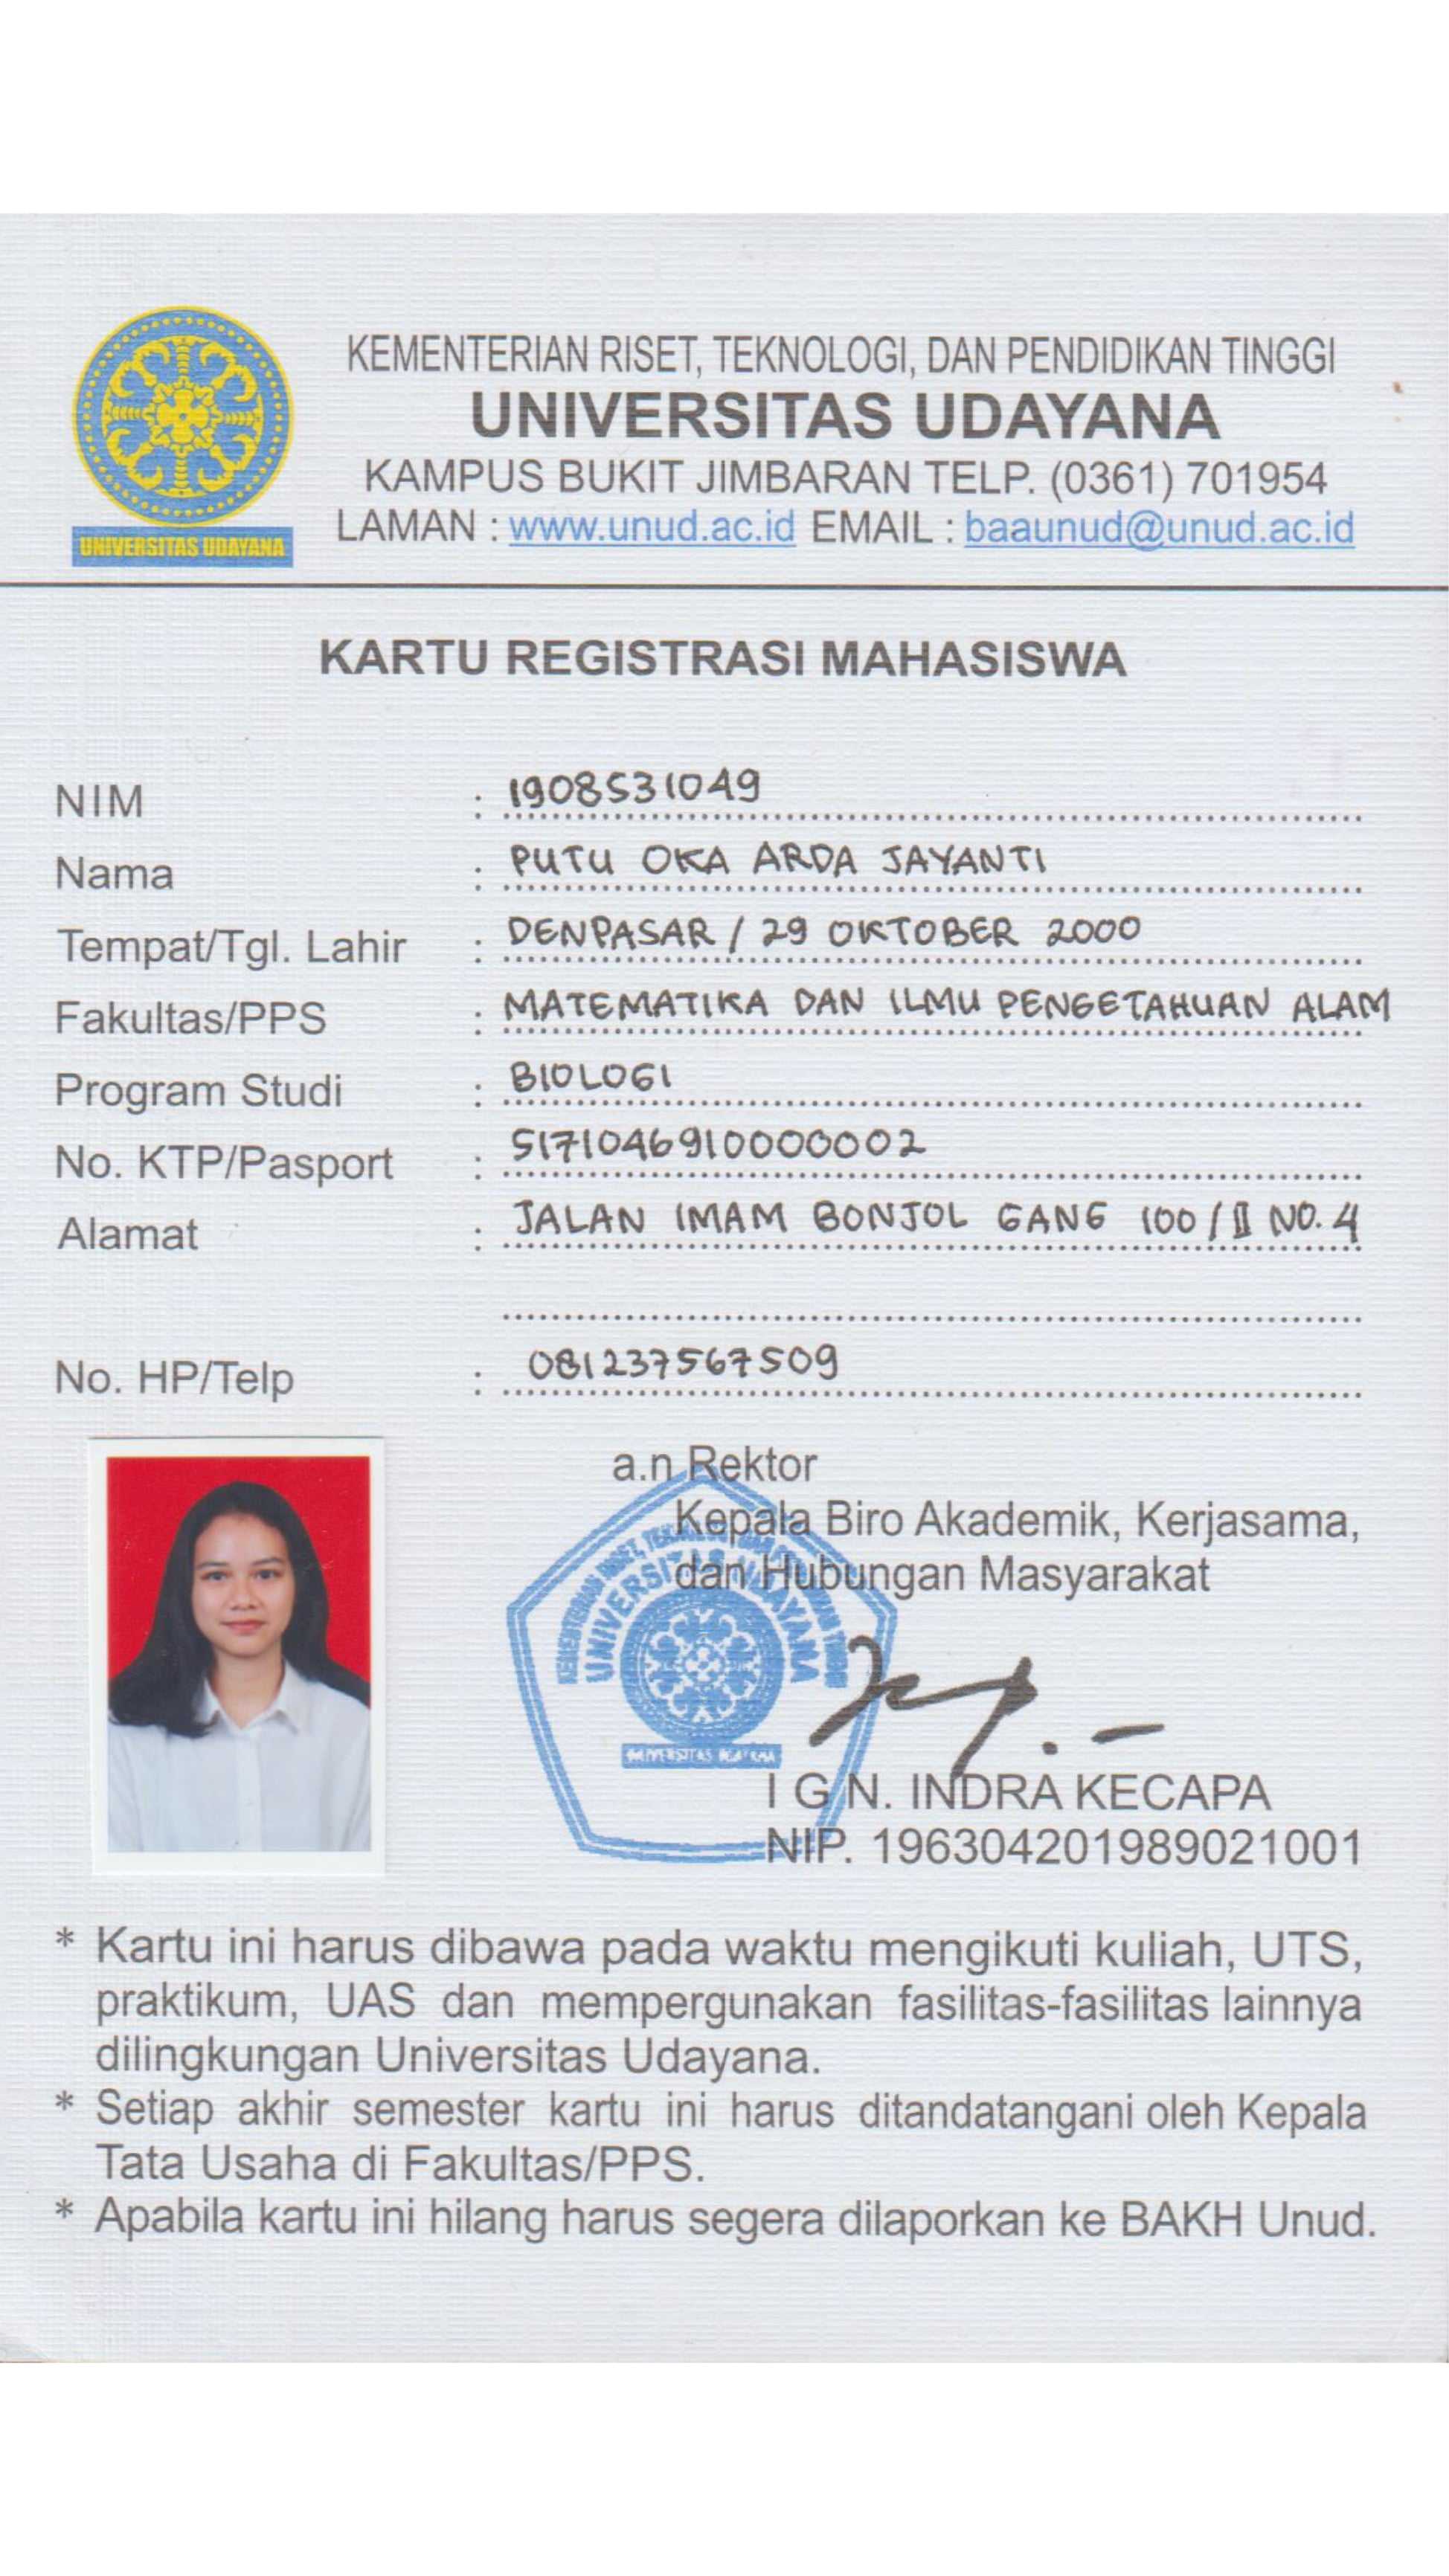 KEMENTERIAN RISET, TEKNOLOGI, DAN PENDIDIKAN TINGGI
UNIVERSITAS UDAYANA
KAMPUS BUKIT JIMBARAN TELP. (0361) 701954
LAMAN : www.unud.ac.id EMAIL : baaunud@unud.ac.id
UNIVERSITAS UDAYANA
KARTU REGISTRASI MAHASISWA
NIM : 1908531049
Nama : PUTU OKA ARDA JAYANTI
Tempat/Tgl. Lahir : DENPASAR / 29 OKTOBER 2000
Fakultas/PPS : MATEMATIKA DAN ILMU PENGETAHUAN ALAM
Program Studi : BIOLOGI
No. KTP/Pasport : 5171046910000002
Alamat : JALAN IMAM BONJOL GANG 100 / II NO. 4
No. HP/Telp : 081237567509
a.n Rektor
Kepala Biro Akademik, Kerjasama,
dan Hubungan Masyarakat
UNIVERSITAS UDAYANA
UNIVERSITAS UDAYANA
I G N. INDRA KECAPA
NIP. 196304201989021001
* Kartu ini harus dibawa pada waktu mengikuti kuliah, UTS,
praktikum, UAS dan mempergunakan fasilitas-fasilitas lainnya
dilingkungan Universitas Udayana.
* Setiap akhir semester kartu ini harus ditandatangani oleh Kepala
Tata Usaha di Fakultas/PPS.
* Apabila kartu ini hilang harus segera dilaporkan ke BAKH Unud.